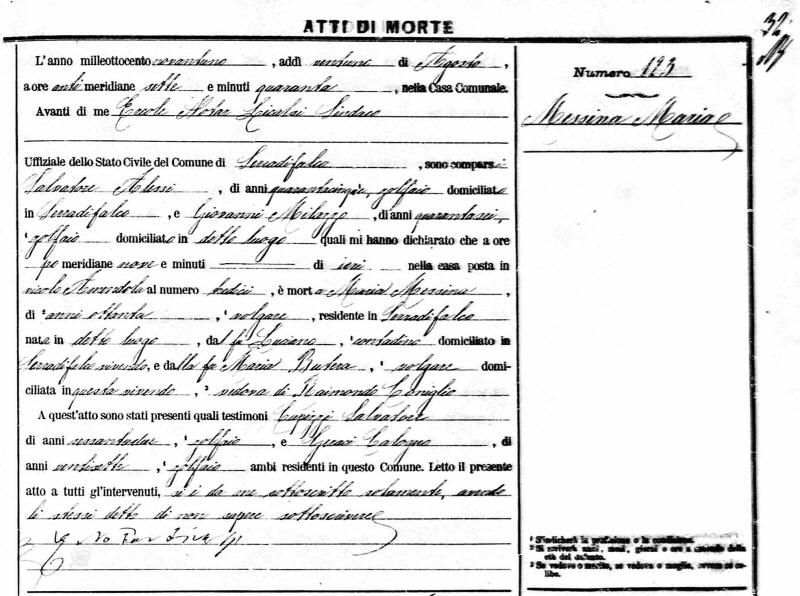 ATTI DI MORTE
32
L'anno milleottocento novantuno, addì ventuno di Agosto,
a ore anti meridiane sette e minuti quaranta, nella Casa Comunale.
Avanti di me Ercole Notar Licalsi Sindaco
Uffiziale dello Stato Civile del Comune di Serradifalco, sono comparsi
Salvatore Alessi, di anni quarantacinque, zolfaio domiciliato
in Serradifalco, e Giovanni Milazzo, di anni quarantasei,
¹ zolfaio domiciliato in detto luogo quali mi hanno dichiarato che a ore
po meridiane nove e minuti di ieri nella casa posta in
vicolo al numero tredici, è morta Maria Messina,
di ² anni ottanta, ¹ volgare, residente in Serradifalco
nata in detto luogo, dal fu Luciano, ¹ contadino domiciliato in
Serradifalco vivendo, e dalla fu Maria Butera, ¹ volgare domi-
ciliata in questa vivendo, ³ vedova di Raimondo Coniglio
A quest'atto sono stati presenti quali testimoni Capizzi Salvatore
di anni sessantadue, ¹ zolfaio, e Calogero, di
anni ventisette, ¹ zolfaio ambi residenti in questo Comune. Letto il presente
atto a tutti gl'intervenuti, si è da me sottoscritto solamente, avendo
li stessi detto di non sapere sottoscrivere
Numero 123
Messina Maria
¹ S'indicherà la professione o la condizione.
² Si scriverà anni, mesi, giorni o ore a seconda della
età del defunto.
³ Se vedovo o marito, se vedova o moglie, ovvero se ce-
libe.